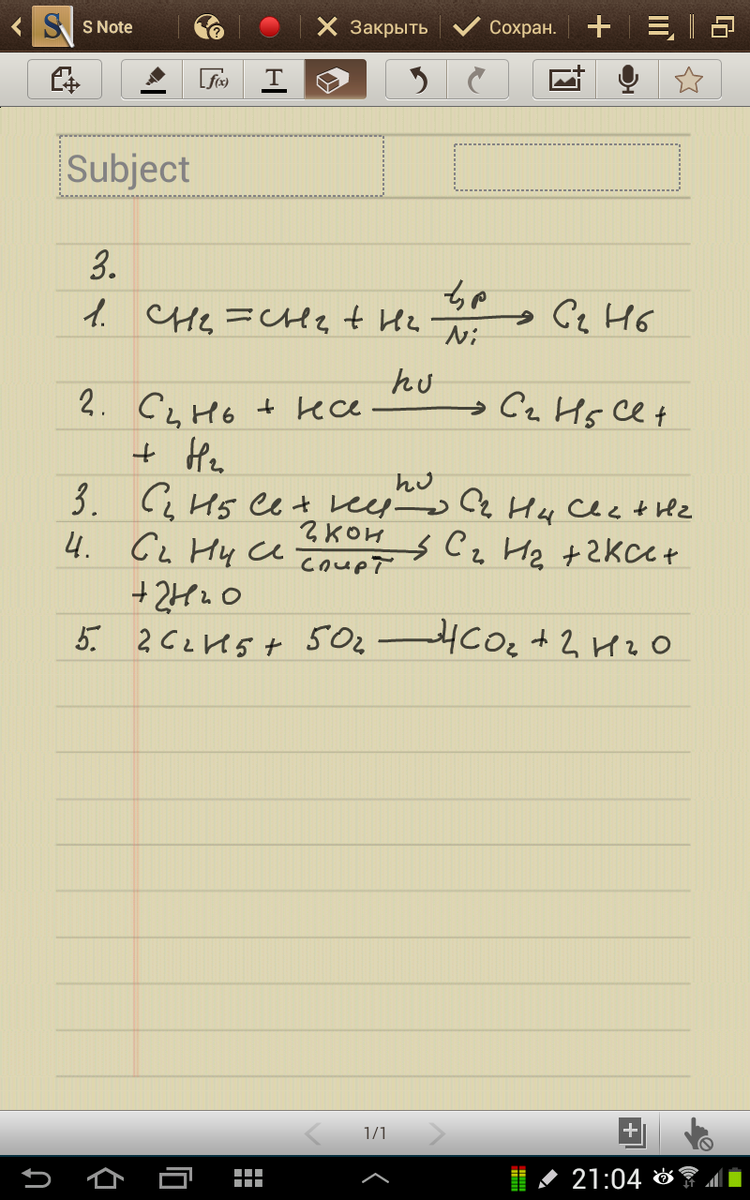 S Note
Закрыть
Сохран.
f(x)
T
Subject
3.
1. CH2=CH2 + H2 t,p Ni → C2H6
2. C2H6 + HCl hν → C2H5Cl +
+ H2
3. C2H5Cl + HCl hν → C2H4Cl2 + H2
4. C2H4Cl 2KOH спирт → C2H2 + 2KCl +
+2H2O
5. 2C2H5 + 5O2 → 4CO2 + 2H2O
1/1
21:04